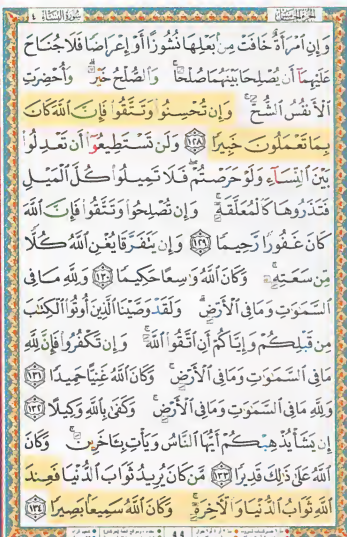 الجزء الخامس سورة النساء ٤
وَإِنِ ٱمۡرَأَةٌ خَافَتۡ مِنۢ بَعۡلِهَا نُشُوزًا أَوۡ إِعۡرَاضٗا فَلَا جُنَاحَ
عَلَيۡهِمَآ أَن يُصۡلِحَا بَيۡنَهُمَا صُلۡحٗاۚ وَٱلصُّلۡحُ خَيۡرٞۗ وَأُحۡضِرَتِ
ٱلۡأَنفُسُ ٱلشُّحَّۚ وَإِن تُحۡسِنُواْ وَتَتَّقُواْ فَإِنَّ ٱللَّهَ كَانَ
بِمَا تَعۡمَلُونَ خَبِيرٗا ١٢٨ وَلَن تَسۡتَطِيعُوٓاْ أَن تَعۡدِلُواْ
بَيۡنَ ٱلنِّسَآءِ وَلَوۡ حَرَصۡتُمۡۖ فَلَا تَمِيلُواْ كُلَّ ٱلۡمَيۡلِ
فَتَذَرُوهَا كَٱلۡمُعَلَّقَةِۚ وَإِن تُصۡلِحُواْ وَتَتَّقُواْ فَإِنَّ ٱللَّهَ
كَانَ غَفُورٗا رَّحِيمٗا ١٢٩ وَإِن يَتَفَرَّقَا يُغۡنِ ٱللَّهُ كُلّٗا
مِّن سَعَتِهِۦۚ وَكَانَ ٱللَّهُ وَٰسِعًا حَكِيمٗا ١٣٠ وَلِلَّهِ مَا فِي
ٱلسَّمَٰوَٰتِ وَمَا فِي ٱلۡأَرۡضِۗ وَلَقَدۡ وَصَّيۡنَا ٱلَّذِينَ أُوتُواْ ٱلۡكِتَٰبَ
مِن قَبۡلِكُمۡ وَإِيَّاكُمۡ أَنِ ٱتَّقُواْ ٱللَّهَۚ وَإِن تَكۡفُرُواْ فَإِنَّ لِلَّهِ
مَا فِي ٱلسَّمَٰوَٰتِ وَمَا فِي ٱلۡأَرۡضِۚ وَكَانَ ٱللَّهُ غَنِيًّا حَمِيدٗا ١٣١
وَلِلَّهِ مَا فِي ٱلسَّمَٰوَٰتِ وَمَا فِي ٱلۡأَرۡضِۚ وَكَفَىٰ بِٱللَّهِ وَكِيلًا ١٣٢
إِن يَشَأۡ يُذۡهِبۡكُمۡ أَيُّهَا ٱلنَّاسُ وَيَأۡتِ بِـَٔاخَرِينَۚ وَكَانَ
ٱللَّهُ عَلَىٰ ذَٰلِكَ قَدِيرٗا ١٣٣ مَّن كَانَ يُرِيدُ ثَوَابَ ٱلدُّنۡيَا فَعِندَ
ٱللَّهِ ثَوَابُ ٱلدُّنۡيَا وَٱلۡأٓخِرَةِۚ وَكَانَ ٱللَّهُ سَمِيعَۢا بَصِيرٗا ١٣٤
٩٩